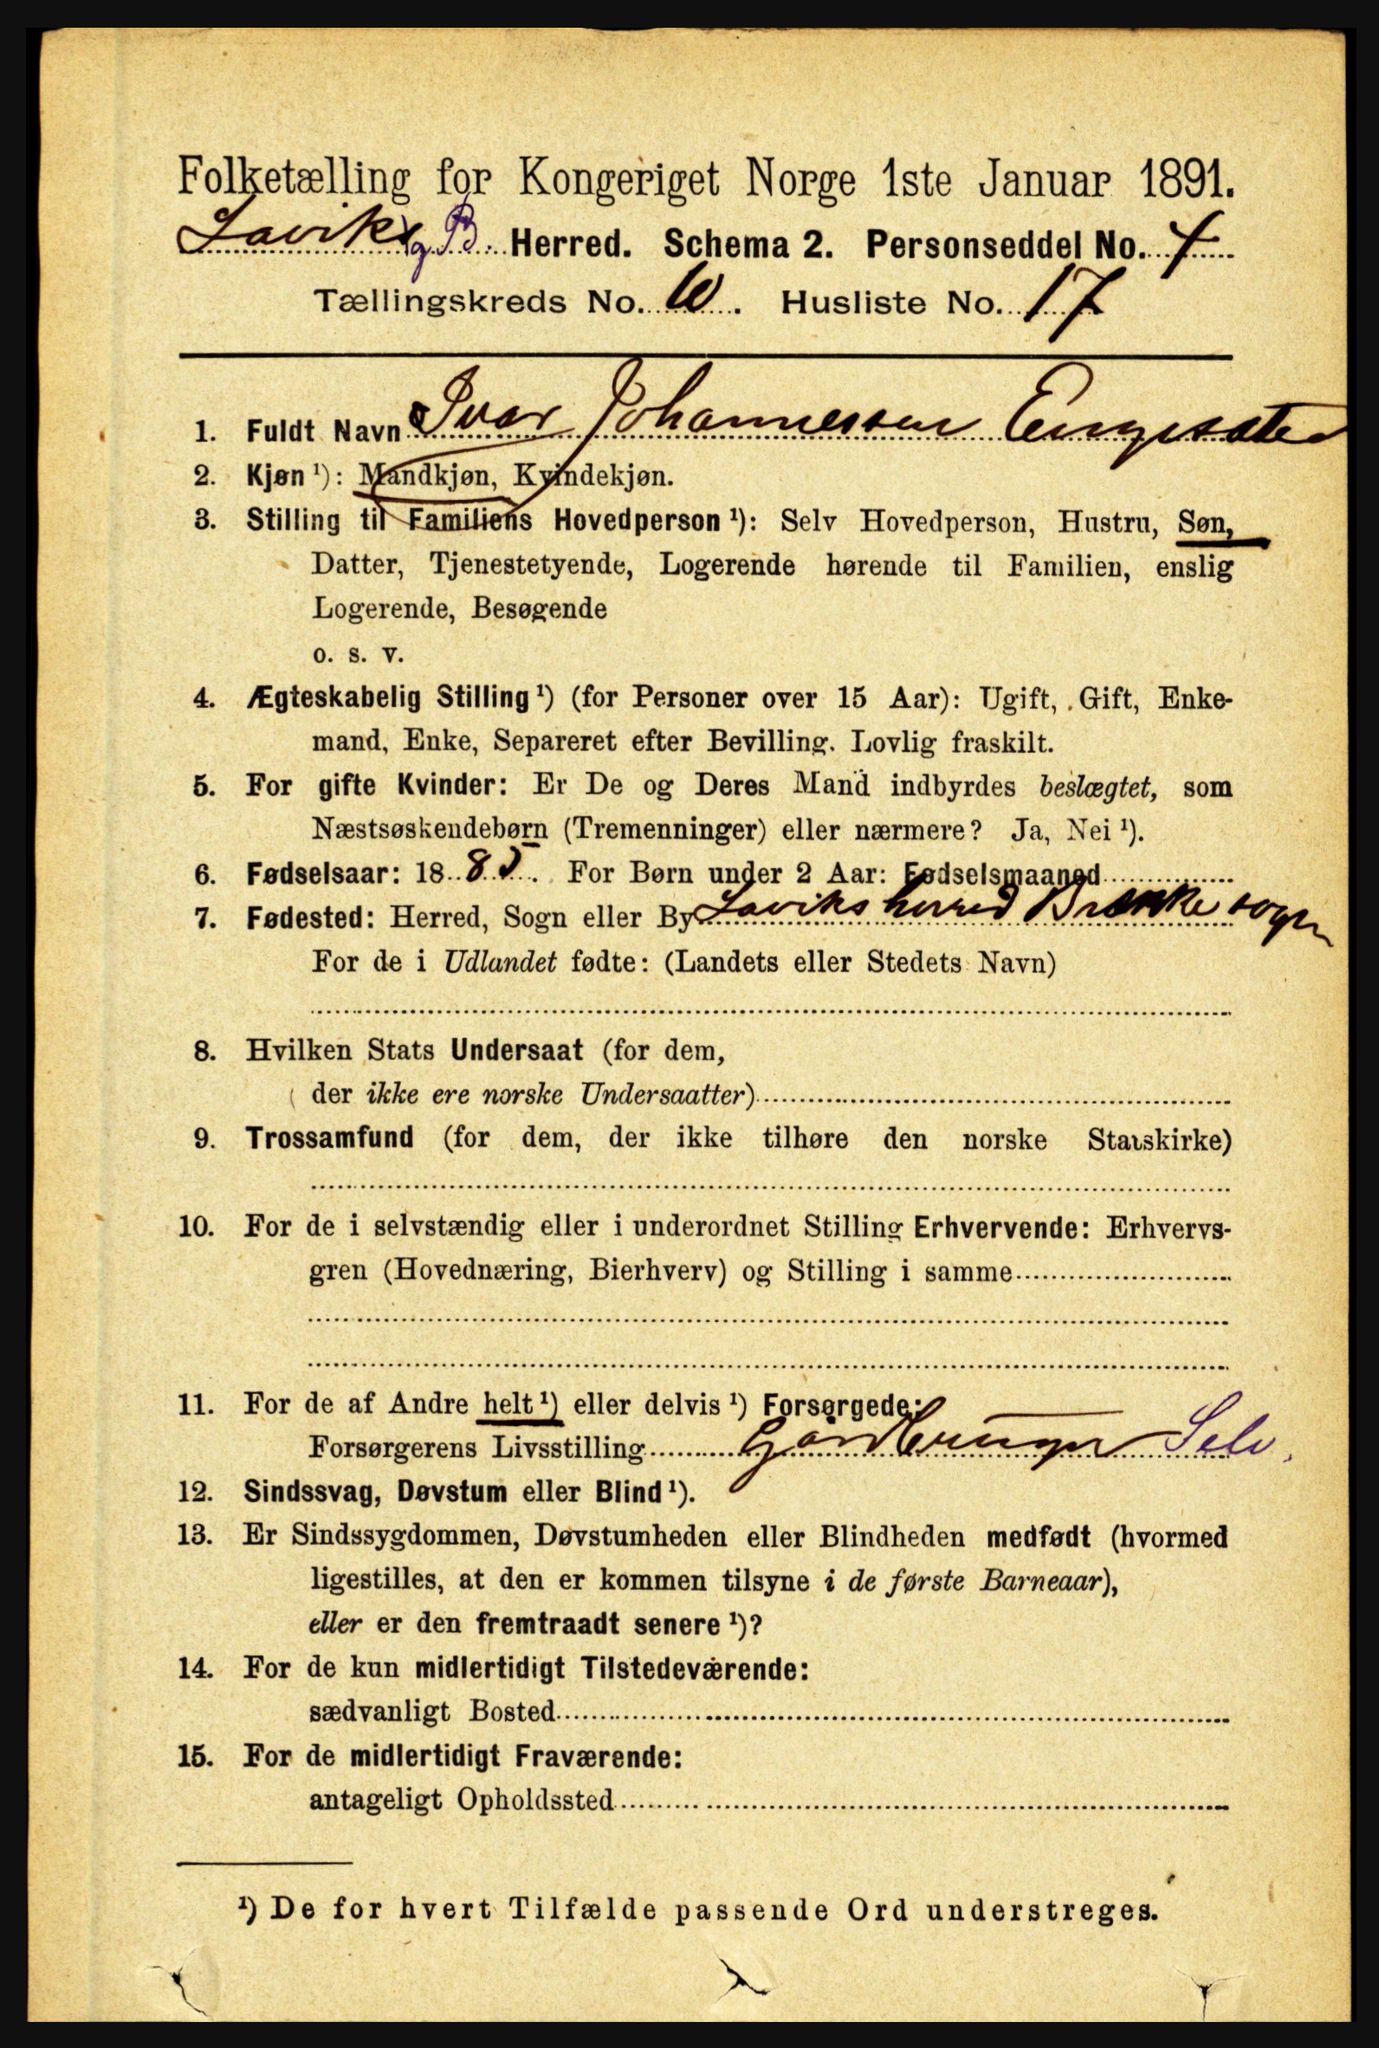 Folketælling for Kongeriget Norge 1ste Januar 1891.
Laviks og B. Herred. Schema 2. Personseddel No. 4
Tællingskreds No. 10. Husliste No. 17
1. Fuldt Navn Ivar Johannessen Engesæter
2. Kjøn ¹): Mandkjøn, Kvindekjøn.
3. Stilling til Familiens Hovedperson ¹): Selv Hovedperson, Hustru, Søn,
Datter, Tjenestetyende, Logerende hørende til Familien, enslig
Logerende, Besøgende
o. s. v.
4. Ægteskabelig Stilling ¹) (for Personer over 15 Aar): Ugift, Gift, Enke-
mand, Enke, Separeret efter Bevilling. Lovlig fraskilt.
5. For gifte Kvinder: Er De og Deres Mand indbyrdes beslægtet, som
Næstsøskendebørn (Tremenninger) eller nærmere? Ja, Nei ¹).
6. Fødselsaar: 1885. For Børn under 2 Aar: Fødselsmaaned
7. Fødested: Herred, Sogn eller By Laviks herred Brække sogn
For de i Udlandet fødte: (Landets eller Stedets Navn)
8. Hvilken Stats Undersaat (for dem,
der ikke ere norske Undersaatter)
9. Trossamfund (for dem, der ikke tilhøre den norske Statskirke)
10. For de i selvstændig eller i underordnet Stilling Erhvervende: Erhvervs-
gren (Hovednæring, Bierhverv) og Stilling i samme
11. For de af Andre helt ¹) eller delvis ¹) Forsørgede:
Forsørgerens Livsstilling Gårdbruger Selv.
12. Sindssvag, Døvstum eller Blind ¹).
13. Er Sindssygdommen, Døvstumheden eller Blindheden medfødt (hvormed
ligestilles, at den er kommen tilsyne i de første Barneaar),
eller er den fremtraadt senere ¹)?
14. For de kun midlertidigt Tilstedeværende:
sædvanligt Bosted
15. For de midlertidigt Fraværende:
antageligt Opholdssted
¹) De for hvert Tilfælde passende Ord understreges.